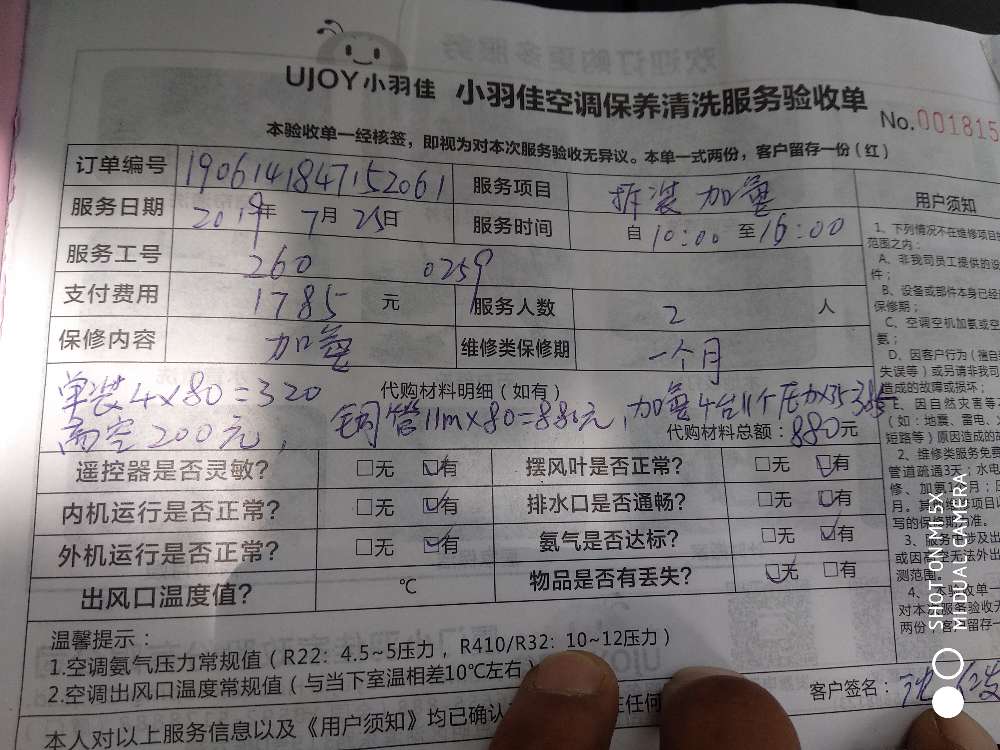 UJOY小羽佳 小羽佳空调保养清洗服务验收单
No.001815
本验收单一经核签，即视为对本次服务验收无异议。本单一式两份，客户留存一份（红）
订单编号 1906141847152061 服务项目 拆装 加氟
服务日期 2019年 7月 25日 服务时间 自 10:00 至 16:00
服务工号 260 0259
支付费用 1785 元 服务人数 2 人
保修内容 加氟 维修类保修期 一个月
代购材料明细（如有）
单装4×80=320
铜管11m×80=880元，加氟4台11个压力×35=385
高空200元，
代购材料总额：880元
遥控器是否灵敏？ □无 □有 摆风叶是否正常？ □无 □有
内机运行是否正常？ □无 □有 排水口是否通畅？ □无 □有
外机运行是否正常？ □无 □有 氨气是否达标？ □无 □有
出风口温度值？ ℃ 物品是否有丢失？ □无 □有
温馨提示：
1.空调氨气压力常规值（R22：4.5~5压力，R410/R32：10~12压力）
2.空调出风口温度常规值（与当下室温相差10℃左右）
本人对以上服务信息以及《用户须知》均已确认
在任何
客户签名：
用户须知
1、下列情况不在维修项目
范围之内：
A、非我司员工提供的
件；
B、设备或部件本身已经
保修期；
C、空调空机加氨或空
氨；
D、因客户行为（擅自
失误等）或另请非我司
造成的故障或损坏；
E、因自然灾害等
（如：地震、雷电、
短路等）原因造成的
2、维修类服务免费
管道疏通3天；水电
修、加氨1个月；
月。
写的保修期为准。
3、服务
或因高空无法外出
测范围。
4、本验收单一
对本次服务验收无
两份，客户留存一
SHOT ON MI 5X
MI DUAL CAMERA